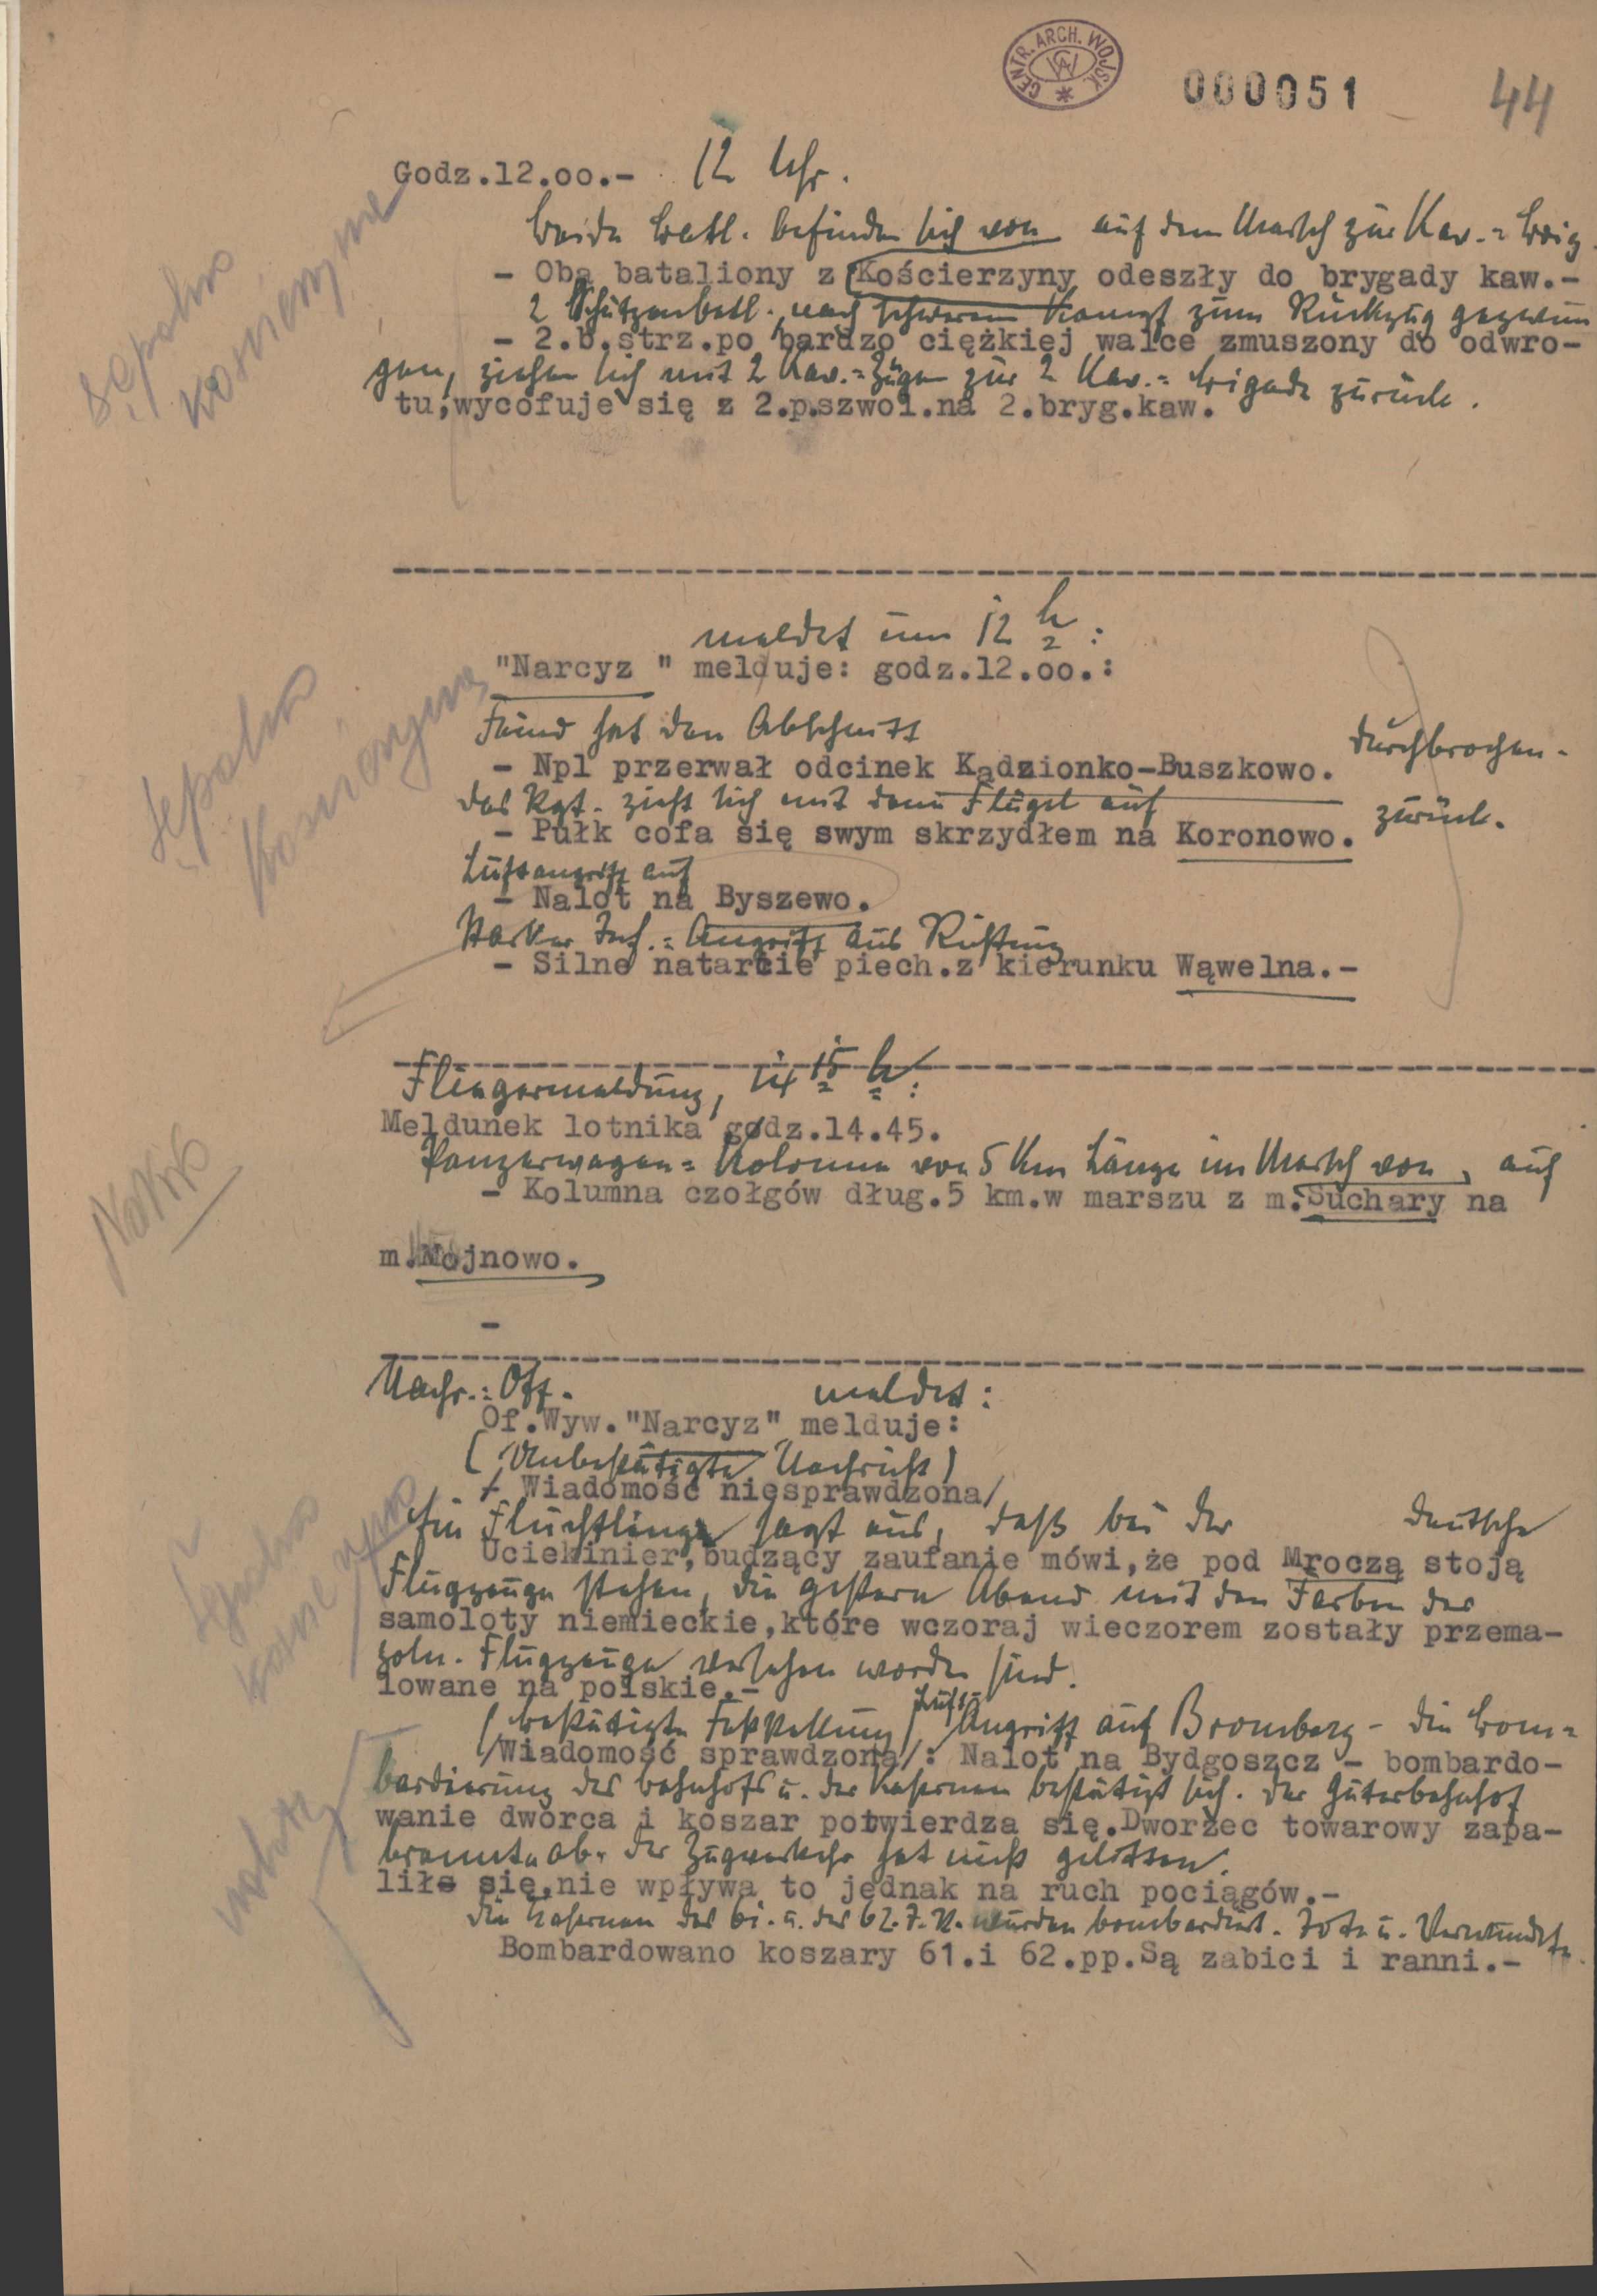 CENTR. ARCH. WOJSK.
CAW
000051
44
Godz.12.oo.- 12 Uhr.
Beide Batl. befinden sich von auf dem Marsch zur Kav.=Brig.
- Oba bataliony z Kościerzyny odeszły do brygady kaw.-
2 Schützenbatl. nach schwerem Kampf zum Rückzug gezwun
- 2.b.strz.po bardzo ciężkiej walce zmuszony do odwro-
gen, ziehen sich mit 2 Kav.=Zügen zur 2 Kav.=Brigade zurück.
tu,wycofuje się z 2.p.szwol.na 2.bryg.kaw.
Sępolno
Kościerzyna
meldet um 12 h:
"Narcyz " melduje: godz.12.oo.:
Feind hat den Abschnitt durchbrochen.
- Npl przerwał odcinek Kądzionko-Buszkowo.
das Rgt. zieht sich mit dem Flügel auf zurück.
- Pułk cofa się swym skrzydłem na Koronowo.
Luftangriff auf
- Nalot na Byszewo.
Starker Inf.=Angriff aus Richtung
- Silne natarcie piech.z kierunku Wąwelna.-
Sępolno
Kościerzyna
Fliegermeldung, 14 15 h:
Meldunek lotnika godz.14.45.
Panzerwagen=Kolonne von 5 Km Länge im Marsch von, auf
- Kolumna czołgów dług.5 km.w marszu z m.Suchary na
m.Mojnowo.
-
Nakło
Nachr.=Off. meldet:
Of.Wyw."Narcyz" melduje:
(Unbestätigte Nachricht)
/ Wiadomość niesprawdzona/
Ein Flüchtling sagt aus, daß bei der deutsche
Uciekinier,budzący zaufanie mówi,że pod Mroczą stoją
Flugzeuge stehen, die gestern Abend mit den Farben der
samoloty niemieckie,które wczoraj wieczorem zostały przema-
poln. Flugzeuge versehen worden sind.
lowane na polskie.-
(bestätigte Feststellung) Luft-Angriff auf Bromberg - die Bom=
/Wiadomość sprawdzona/: Nalot na Bydgoszcz - bombardo-
bardierung des Bahnhofs u. der Kasernen bestätigt sich. Der Güterbahnhof
wanie dworca i koszar potwierdza się.Dworzec towarowy zapa-
brannte ab. Der Zugverkehr hat nicht gelitten.
lił się,nie wpływa to jednak na ruch pociągów.-
die Kasernen des 61. u. des 62. J.R. wurden bombardiert. Tote u. Verwundete
Bombardowano koszary 61.i 62.pp.Są zabici i ranni.-
Sępolno
naloty